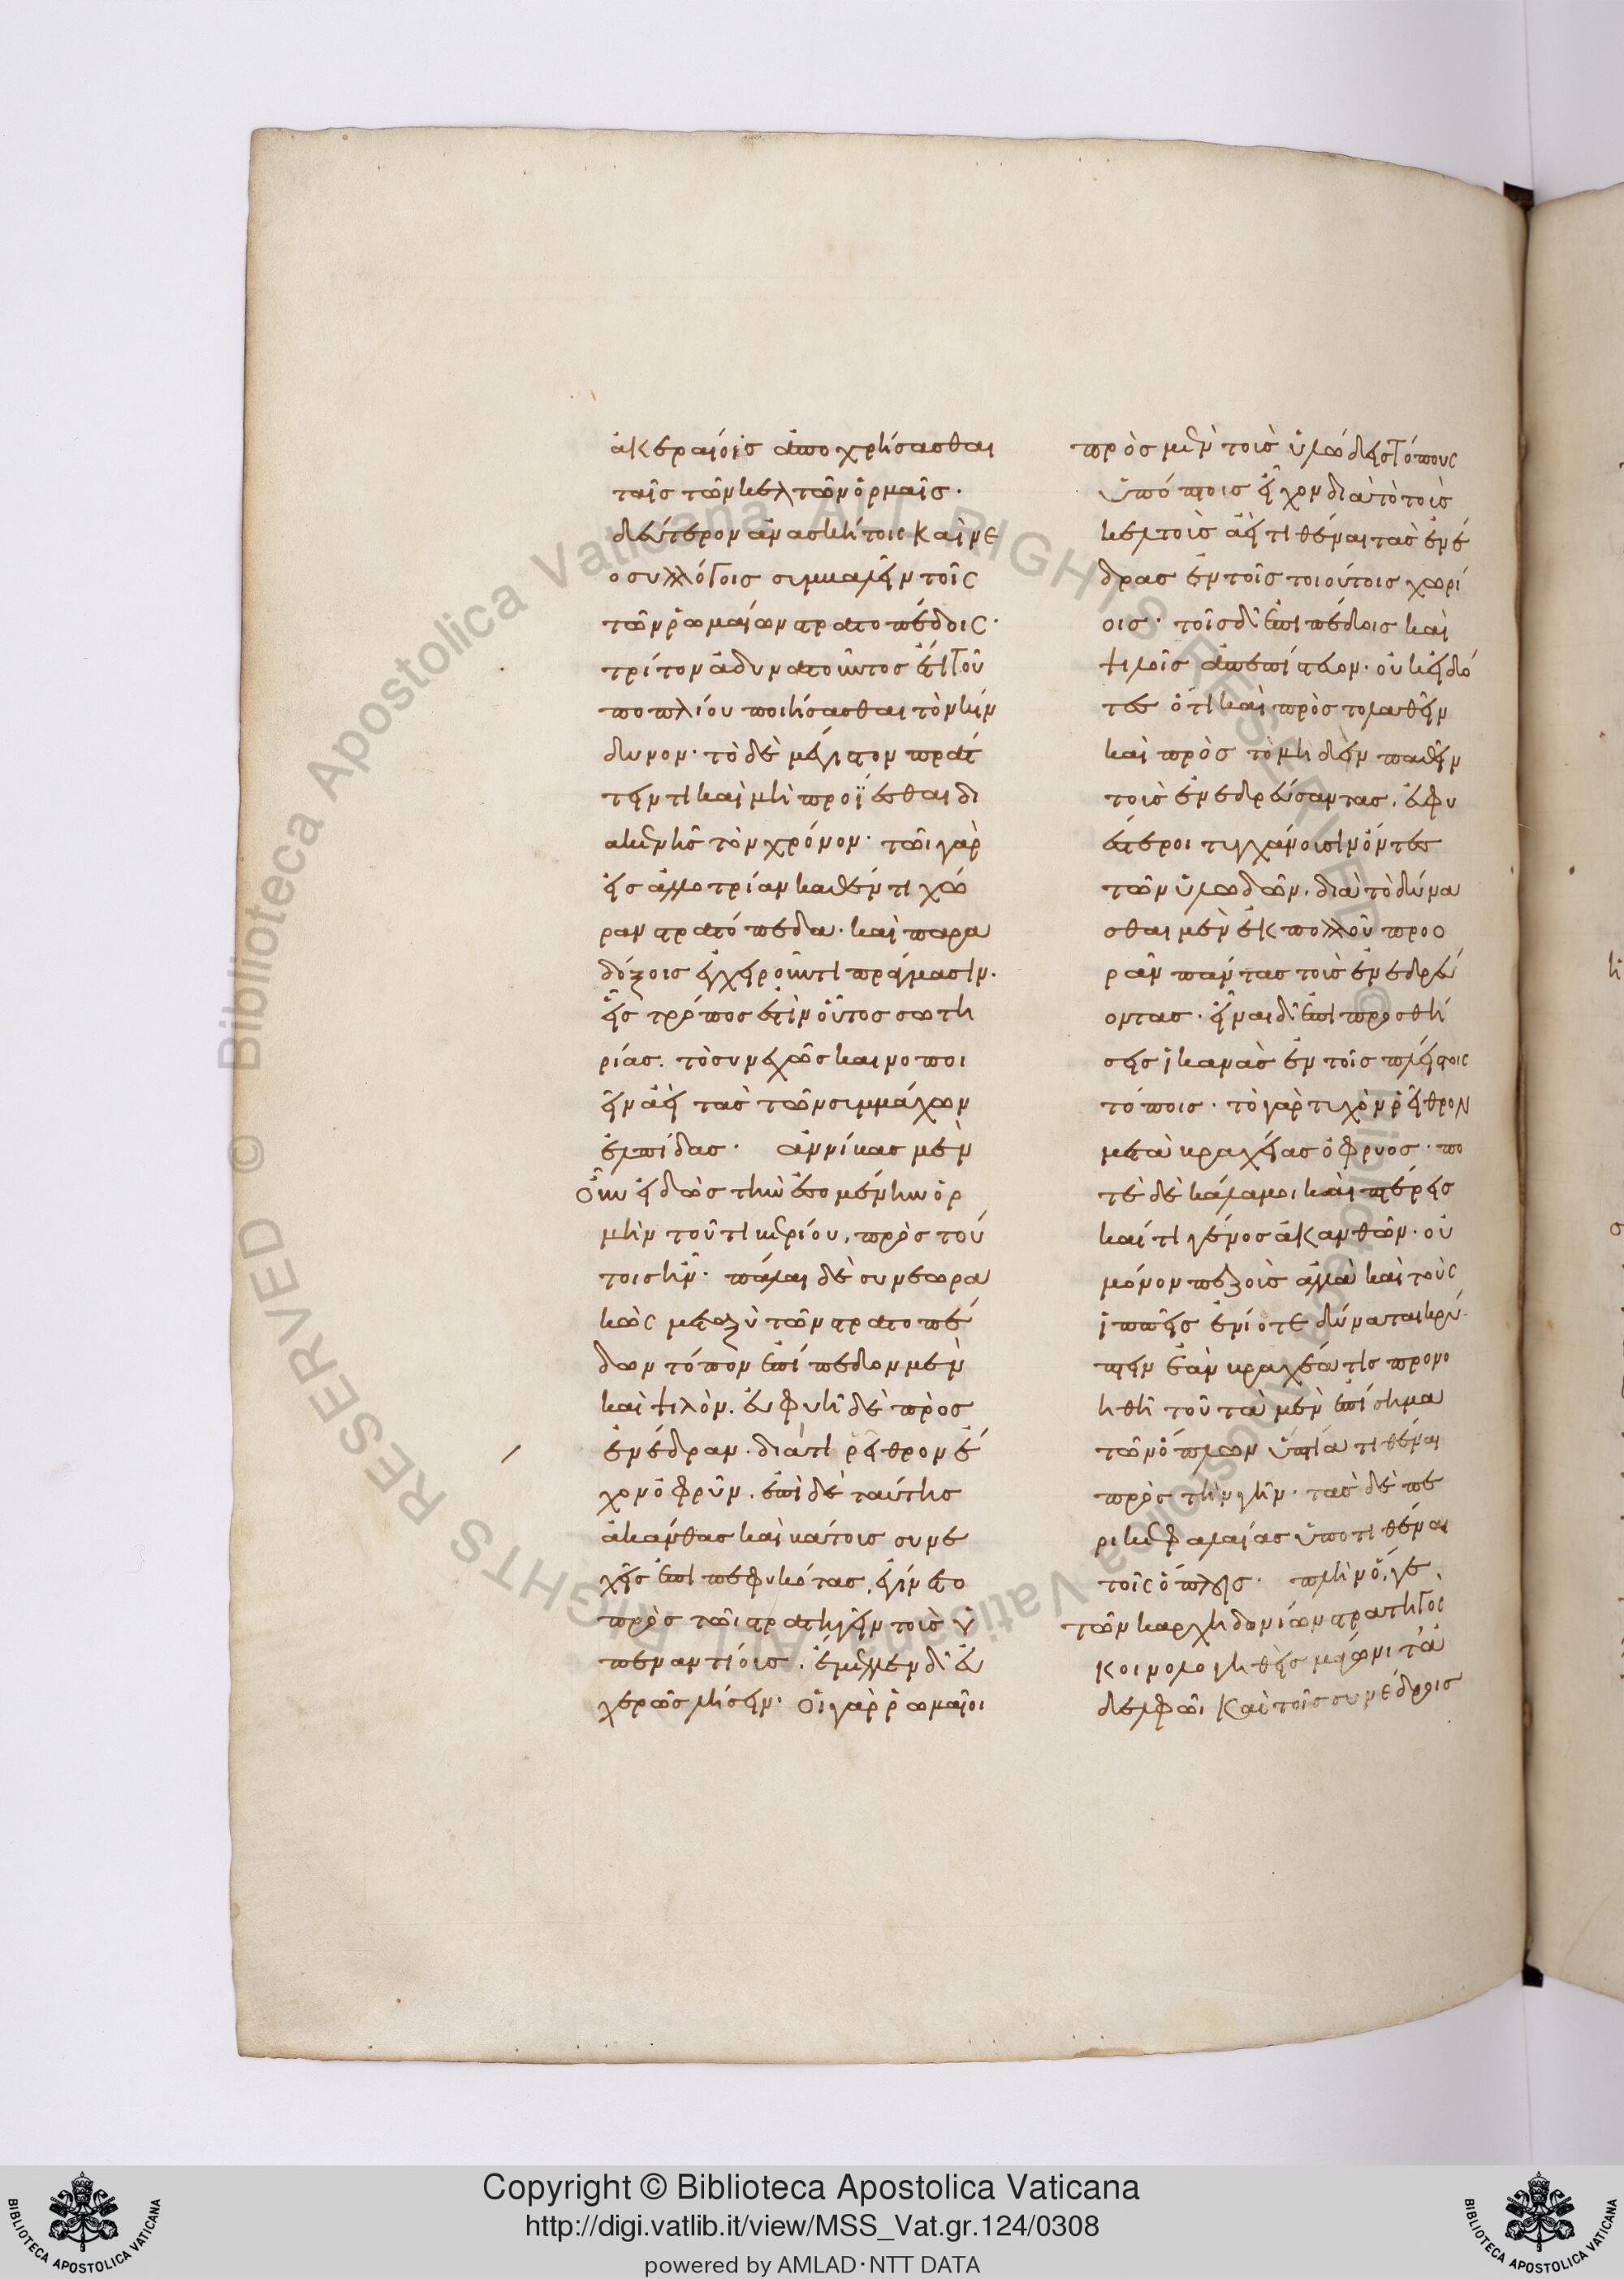 ἀκεραίοις ἀποχρήσασθαι
ταῖς τῶν κελτῶν ὁρμαῖς·
δεύτερον ἀνασκήτοις καὶ νε
οσυλλόγοις συμβαλεῖν τοῖς
τῶν ῥωμαίων στρατοπέδοις·
τρίτον ἀδυνατοῦντος ἔτι τοῦ
ποπλίου ποιήσασθαι τὸν κίν
δυνον· τὸ δὲ μέγιστον πράτ
τειν τι καὶ μὴ προΐεσθαι δι
ακενῆς τὸν χρόνον· τῶι γὰρ
εἰς ἀλλοτρίαν καθέντι χώ
ραν στρατόπεδα· καὶ παρα
δόξοις ἐγχειροῦντι πράγμασιν·
εἷς τρόπος ἐστὶν οὗτος σωτη
ρίας· τὸ συνεχῶς καινοποι
εῖν ἀεὶ τὰς τῶν συμμάχων
ἐλπίδας· ἀννίβας μὲν
οὖν εἰδὼς τὴν ἐσομένην ὁρ
μὴν τοῦ τιβερίου, πρὸς τού
τοις ἦν· πάλαι δὲ συνεωρα
κὼς μεταξὺ τῶν στρατοπέ
δων τόπον ἐπίπεδον μὲν
καὶ ψιλόν· εὐφυῆ δὲ πρὸς
ἐνέδραν· διά τι ῥεῖθρον ἔ
χον ὀφρῦν· ἐπὶ δὲ ταύτης
ἀκάνθας καὶ βάτους συνε
χεῖς ἐπιπεφυκότας, ἐγίνετο
πρὸς τῶι στρατηγεῖν τοὺς ὑ
πεναντίους· ἔμελλεν δ' εὐ
χερῶς λήσειν· οἱ γὰρ ῥωμαῖοι
πρὸς μὲν τοὺς ὑλώδεις τόπους
ὑπόπτως εἶχον διὰ τὸ τοὺς
κελτοὺς ἀεὶ τιθέναι τὰς ἐνέ
δρας ἐν τοῖς τοιούτοις χωρί
οις· τοῖς δ' ἐπιπέδοις καὶ
ψιλοῖς ἀπεπίστευον· οὐκ εἰδό
τες ὅτι καὶ πρὸς τὸ λαθεῖν
καὶ πρὸς τὸ μηδὲν παθεῖν
τοὺς ἐνεδρεύσαντας, εὐφυ
έστεροι τυγχάνουσιν ὄντες
τῶν ὑλωδῶν· διὰ τὸ δύνα
σθαι μὲν ἐκ πολλοῦ προο
ρᾶν πάντας τοὺς ἐνεδρεύ
οντας· εἶναι δ' ἐπιπροσθή
σεις ἱκανὰς ἐν τοῖς πλείστοις
τόποις· τὸ γὰρ τυχὸν ῥεῖθρον
μετὰ βραχείας ὀφρύος· πο
τὲ δὲ κάλαμοι καὶ πτέρεις
καί τι γένος ἀκανθῶν· οὐ
μόνον πεζοὺς ἀλλὰ καὶ τοὺς
ἱππεῖς ἐνίοτε δύναται κρύ
πτειν ἐὰν βραχέα τις προνο
ηθῆ τοῦ τὰ μὲν ἐπίσημα
τῶν ὅπλων ὕπτια τιθέναι
πρὸς τὴν γῆν· τὰς δὲ πε
ρικεφαλαίας ὑποτιθέναι
τοῖς ὅπλοις· πλὴν ὅ γε
τῶν καρχηδονίων στρατηγὸς
κοινολογηθεὶς μάγωνι τἀ
δελφῶι καὶ τοῖς συνέδροις
Copyright © Biblioteca Apostolica Vaticana
http://digi.vatlib.it/view/MSS_Vat.gr.124/0308
powered by AMLAD·NTT DATA
BIBLIOTECA APOSTOLICA VATICANA
BIBLIOTECA APOSTOLICA VATICANA
© Biblioteca Apostolica Vaticana ALL RIGHTS RESERVED © Biblioteca Apostolica Vaticana ALL RIGHTS RESERVED